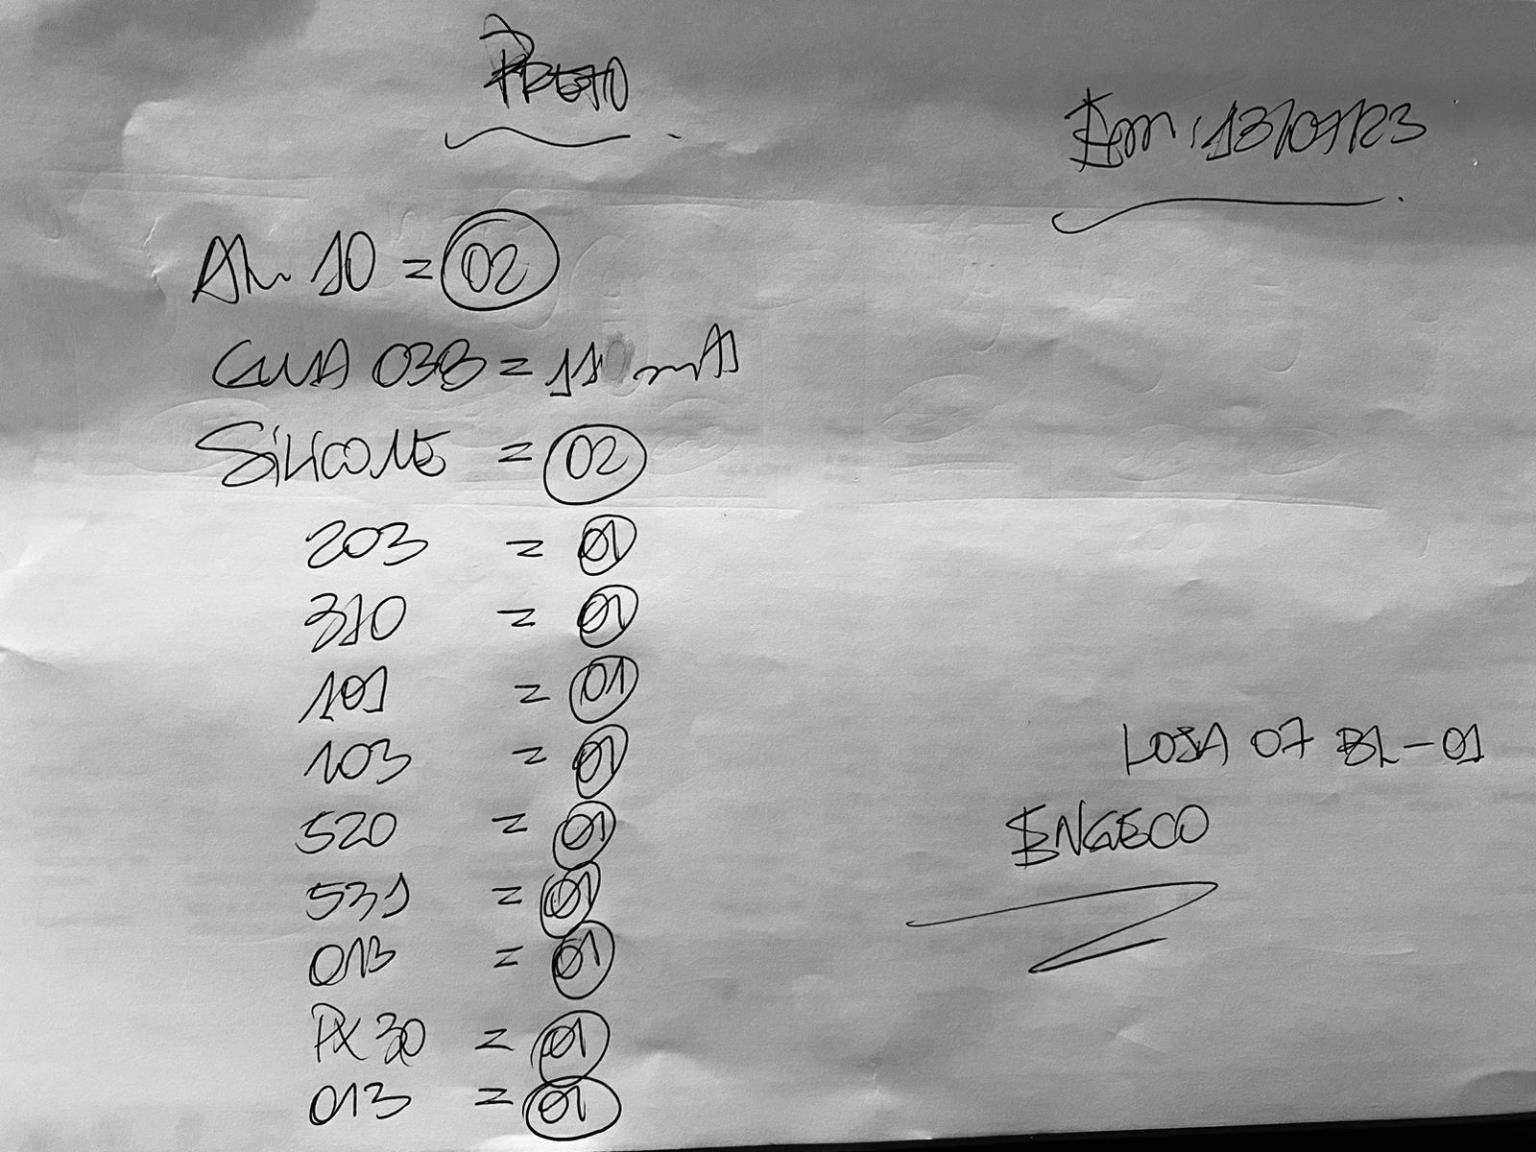 PRETO
Em: 13/07/23
AL 10 = 02
GUIA 03B = 11 mts
SILICONE = 02
203 = 01
310 = 01
101 = 01
103 = 01
520 = 01
531 = 01
013 = 01
PX 30 = 01
013 = 01
LOJA 07 BL-01
ENGECO